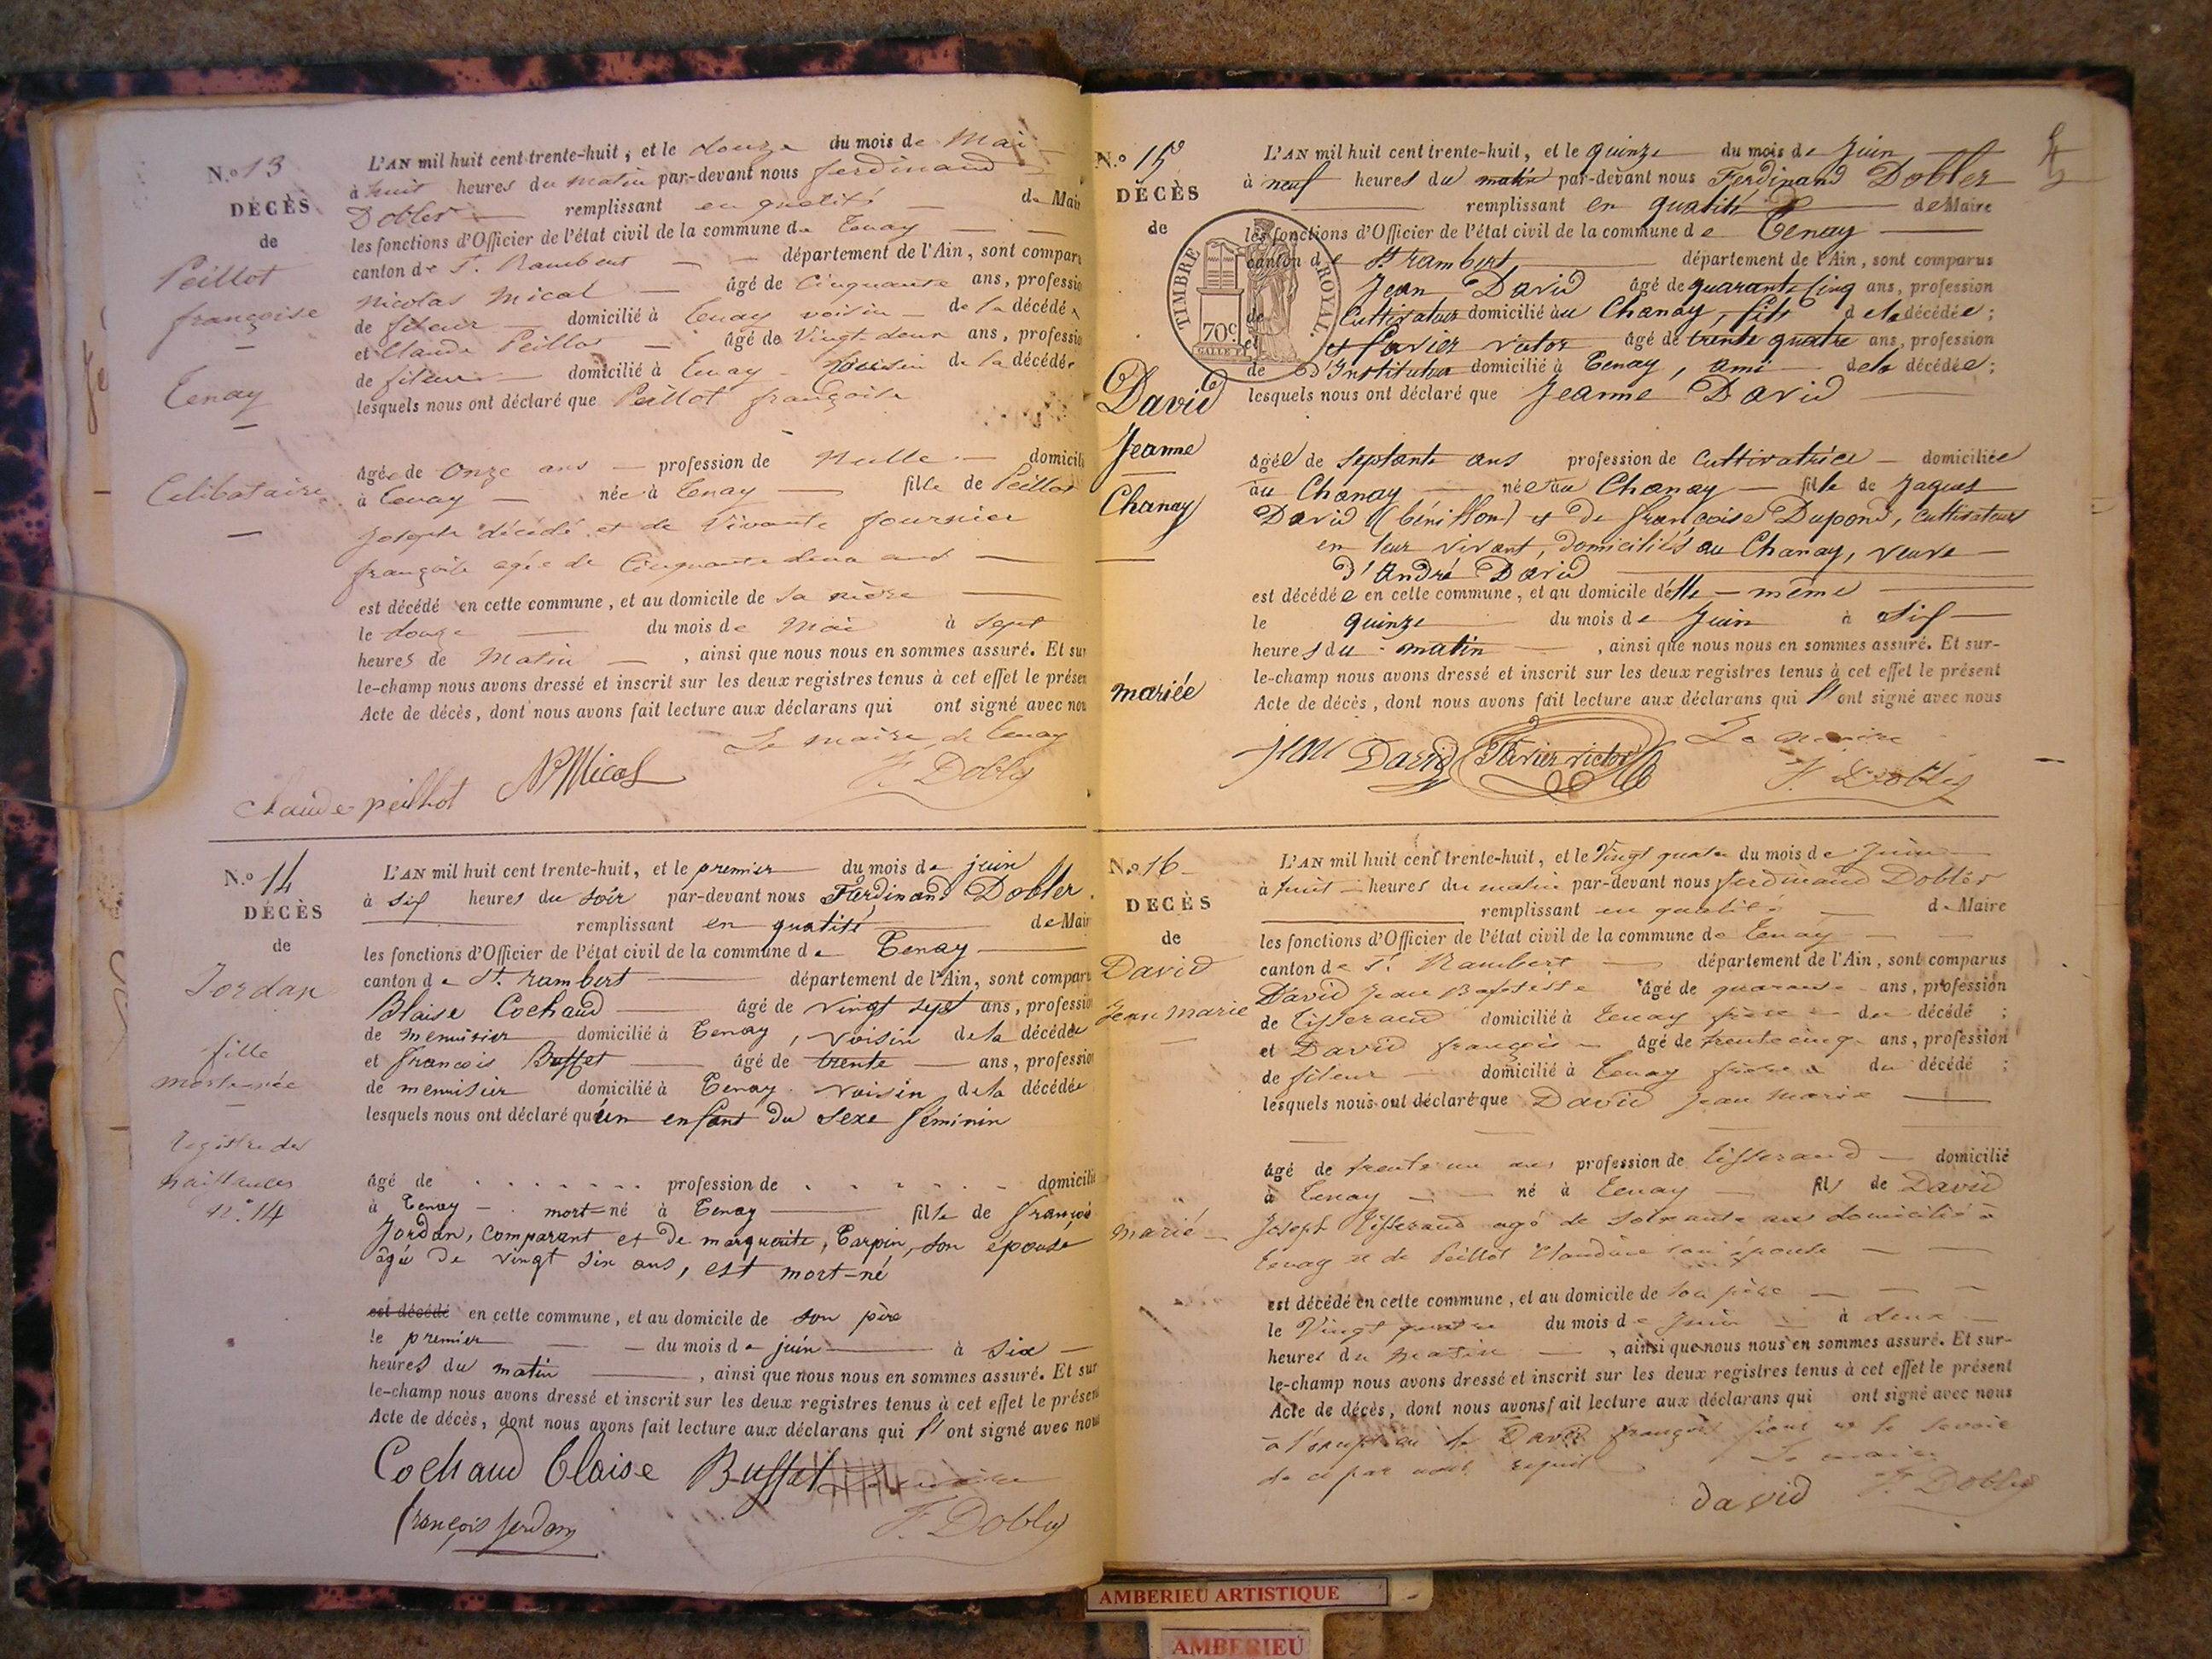 N.o 13
DÉCÈS
de
Peillot
françoise
Tenay
Celibataire
L'AN mil huit cent trente-huit, et le douze du mois de Mai
à huit heures du matin par-devant nous ferdinand
Dobler remplissant en qualité de Mair
les fonctions d'Officier de l'état civil de la commune de Tenay
canton de St. Rambert département de l'Ain, sont compar
Nicolas Micol âgé de Cinquante ans, professio
de fileur domicilié à Tenay voisin de la décédé
et Claude Peillot âgé de Vingt deux ans, professio
de fileur domicilié à Tenay de la décédée
lesquels nous ont déclaré que Peillot françoise
âgée de onze ans profession de Nulle domicili
à Tenay née à Tenay fille de Peillot
Joseph décédé et de Vivante fournier
françoise agée de Cinquante deux ans
est décédé en cette commune, et au domicile de sa mère
le douze du mois de Mai à sept
heures de Matin, ainsi que nous nous en sommes assuré. Et sur
le-champ nous avons dressé et inscrit sur les deux registres tenus à cet effet le présen
Acte de décès, dont nous avons fait lecture aux déclarans qui ont signé avec nou
Le maire de Tenay
Claude peillot N Micol F. Dobler
N.o 14
DÉCÈS
de
Jordan
fille
mort-née
registre des
naissances
n.o 14
L'AN mil huit cent trente-huit, et le premier du mois de juin
à six heures du soir par-devant nous Ferdinand Dobler
remplissant en qualité de Mair
les fonctions d'Officier de l'état civil de la commune de Tenay
canton de St. rambert département de l'Ain, sont compar
Blaise Cochaud âgé de vingt sept ans, professio
de menuisier domicilié à Tenay, voisin de la décédée
et francois Buffet âgé de trente ans, professio
de menuisier domicilié à Tenay voisin de la décédée
lesquels nous ont déclaré qu'un enfant du sexe féminin
âgé de . . . . . . . profession de . . . . . . domicili
à Tenay mort-né à Tenay fille de françois
Jordan, comparant et de marguerite, Carpin, son épouse
âgée de vingt six ans, est mort-né
est décédé en cette commune, et au domicile de son père
le premier du mois de juin à six
heures du matin, ainsi que nous nous en sommes assuré. Et sur
le-champ nous avons dressé et inscrit sur les deux registres tenus à cet effet le présen
Acte de décès, dont nous avons fait lecture aux déclarans qui l'ont signé avec nou
Cochaud blaise Buffet Le maire
françois jordan F. Dobler
N.o 15
DÉCÈS
de
TIMBRE ROYAL
70c
David
Jeanne
Chanay
mariée
L'AN mil huit cent trente-huit, et le quinze du mois de Juin
à neuf heures du matin par-devant nous Ferdinand Dobler
remplissant en qualité de Maire
les fonctions d'Officier de l'état civil de la commune de Tenay
canton de St. rambert, département de l'Ain, sont comparus
Jean David âgé de quarante cinq ans, profession
de Cultivateur domicilié au Chanay, fils de la décédée;
et et favier victor âgé de trente quatre ans, profession
de d'Instituteur domicilié à Tenay, ami de la décédée;
lesquels nous ont déclaré que Jeanne David
âgée de septante ans profession de Cultivatrice domiciliée
au Chanay née au Chanay fille de Jaques
David (béni⁠llon) et de françoise Dupond, Cultivateurs
en leur vivant, domiciliés au Chanay, veuve
d'André David
est décédée en cette commune, et au domicile d'elle-même
le quinze du mois de Juin à six
heures du matin, ainsi que nous nous en sommes assuré. Et sur-
le-champ nous avons dressé et inscrit sur les deux registres tenus à cet effet le présent
Acte de décès, dont nous avons fait lecture aux déclarans qui l'ont signé avec nous
Jean David Favier victor Le maire
F. Dobler
N.o 16
DÉCÈS
de
David
Jean Marie
marié
L'AN mil huit cent trente-huit, et le Vingt quatre du mois de Juin
à huit heures du matin par-devant nous ferdinand Dobler
remplissant en qualité de Maire
les fonctions d'Officier de l'état civil de la commune de Tenay
canton de St. Rambert département de l'Ain, sont comparus
David Jean Baptiste âgé de quarante ans, profession
de Tisserand domicilié à Tenay frère du décédé;
et David françois âgé de trente cinq ans, profession
de fileur domicilié à Tenay frère du décédé;
lesquels nous ont déclaré que David Jean Marie
âgé de trente un ans profession de Tisserand domicilié
à Tenay né à Tenay fils de David
Joseph Tisserand agé de soixante ans domicilié à
Tenay et de Peillot Claudine son épouse
est décédé en cette commune, et au domicile de son père
le Vingt quatre du mois de Juin à deux
heures du matin, ainsi que nous nous en sommes assuré. Et sur-
le-champ nous avons dressé et inscrit sur les deux registres tenus à cet effet le présent
Acte de décès, dont nous avons fait lecture aux déclarans qui ont signé avec nous
à l'exception de David françois pour ne le savoir
de ce par nous requis Le maire
david F. Dobler
AMBERIEU ARTISTIQUE
AMBERIEU